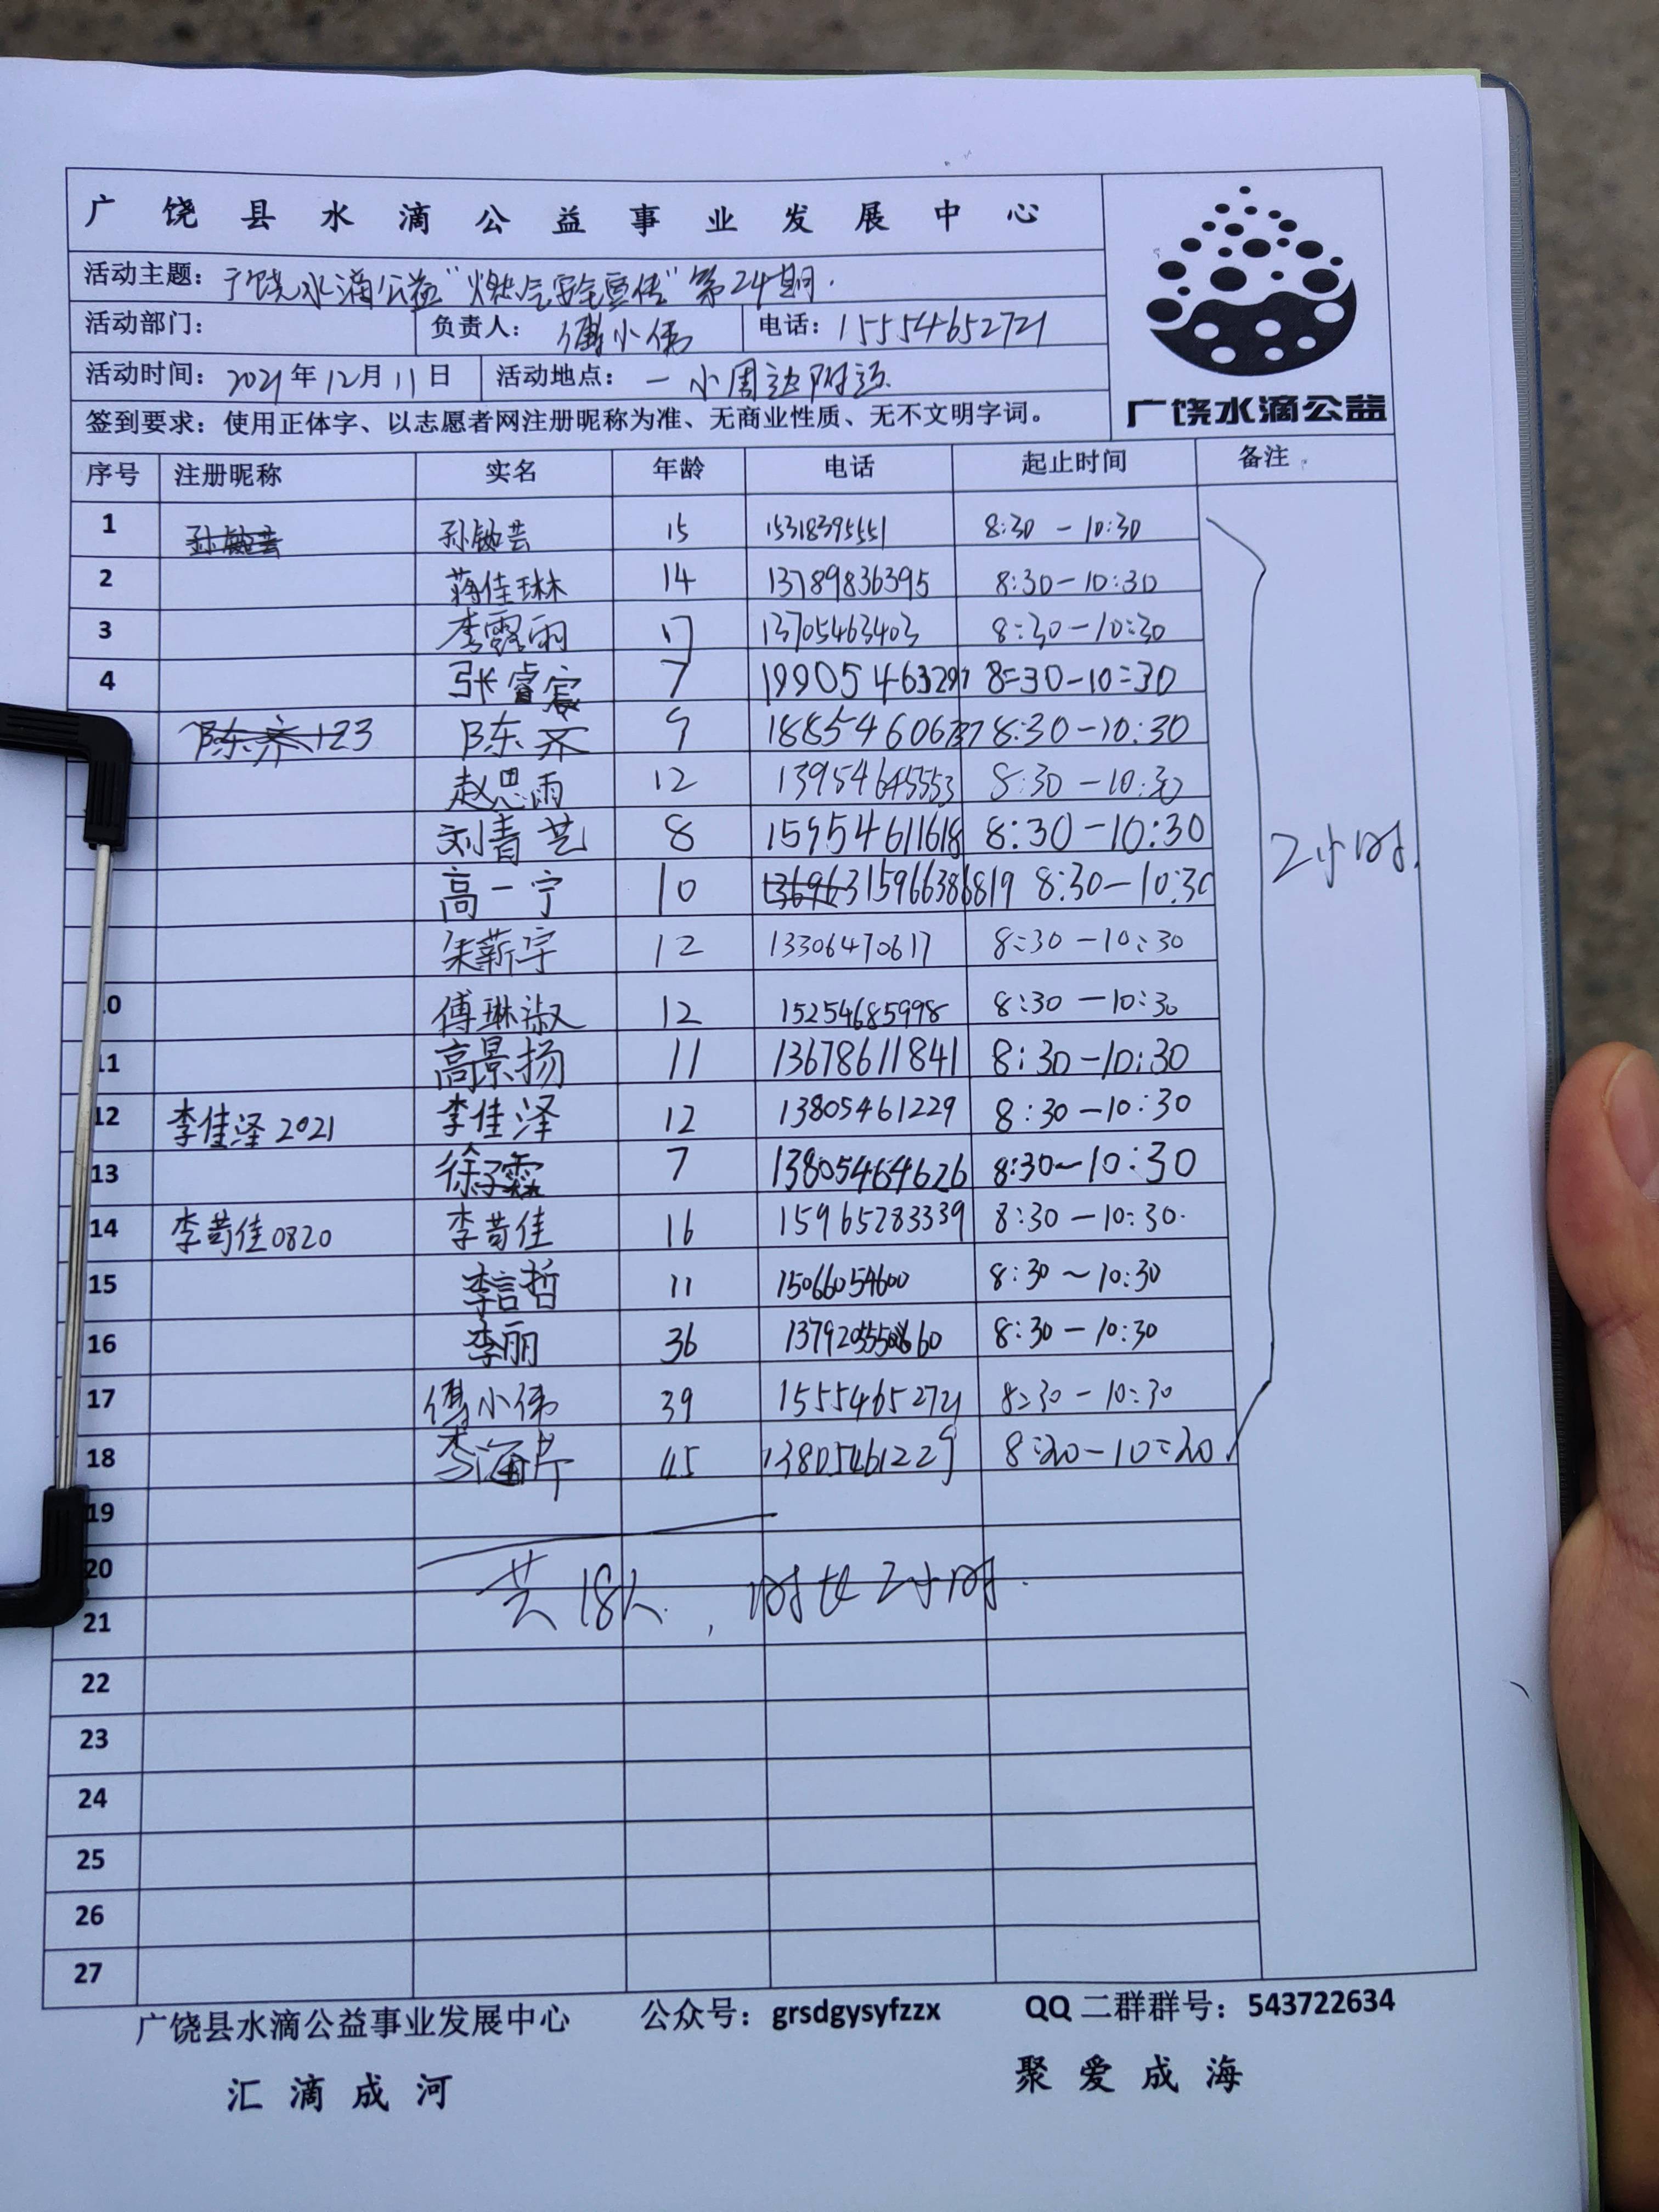 广饶县水滴公益事业发展中心
活动主题：广饶水滴公益"燃气安全宣传"第24期.
活动部门： 负责人：傅小伟 电话：15554652721
活动时间：2021年12月11日 活动地点：一小周边附近.
签到要求：使用正体字、以志愿者网注册昵称为准、无商业性质、无不文明字词。
广饶水滴公益
序号 注册昵称 实名 年龄 电话 起止时间 备注
1 15 15318395551 8:30-10:30
2 蒋佳琳 14 13789836395 8:30-10:30
3 李露雨 17 13705463403 8:30-10:30
4 张睿宸 7 19905463297 8:30-10:30
陈齐123 陈齐 9 8:30-10:30
赵思雨 12 13954645553 8:30-10:30
刘青艺 8 15954611618 8:30-10:30
高一宁 10 15966386819 8:30-10:30
朱薪宇 12 13306470617 8:30-10:30
10 傅琳淑 12 15254685998 8:30-10:30
11 高景扬 11 13678611841 8:30-10:30
12 李佳泽2021 李佳泽 12 13805461229 8:30-10:30
13 7 13805464626 8:30-10:30
14 李苛佳0820 李苛佳 16 15965283339 8:30-10:30.
15 李言哲 11 15066054600 8:30~10:30
16 李丽 36 8:30-10:30
17 傅小伟 39 15554652721 8:30-10:30
18 45 13805461229 8:30-10:30
2小时.
19
20
共18人，时长2小时.
21
22
23
24
25
26
27
广饶县水滴公益事业发展中心 公众号：grsdgysyfzzx QQ二群群号：543722634
汇滴成河 聚爱成海